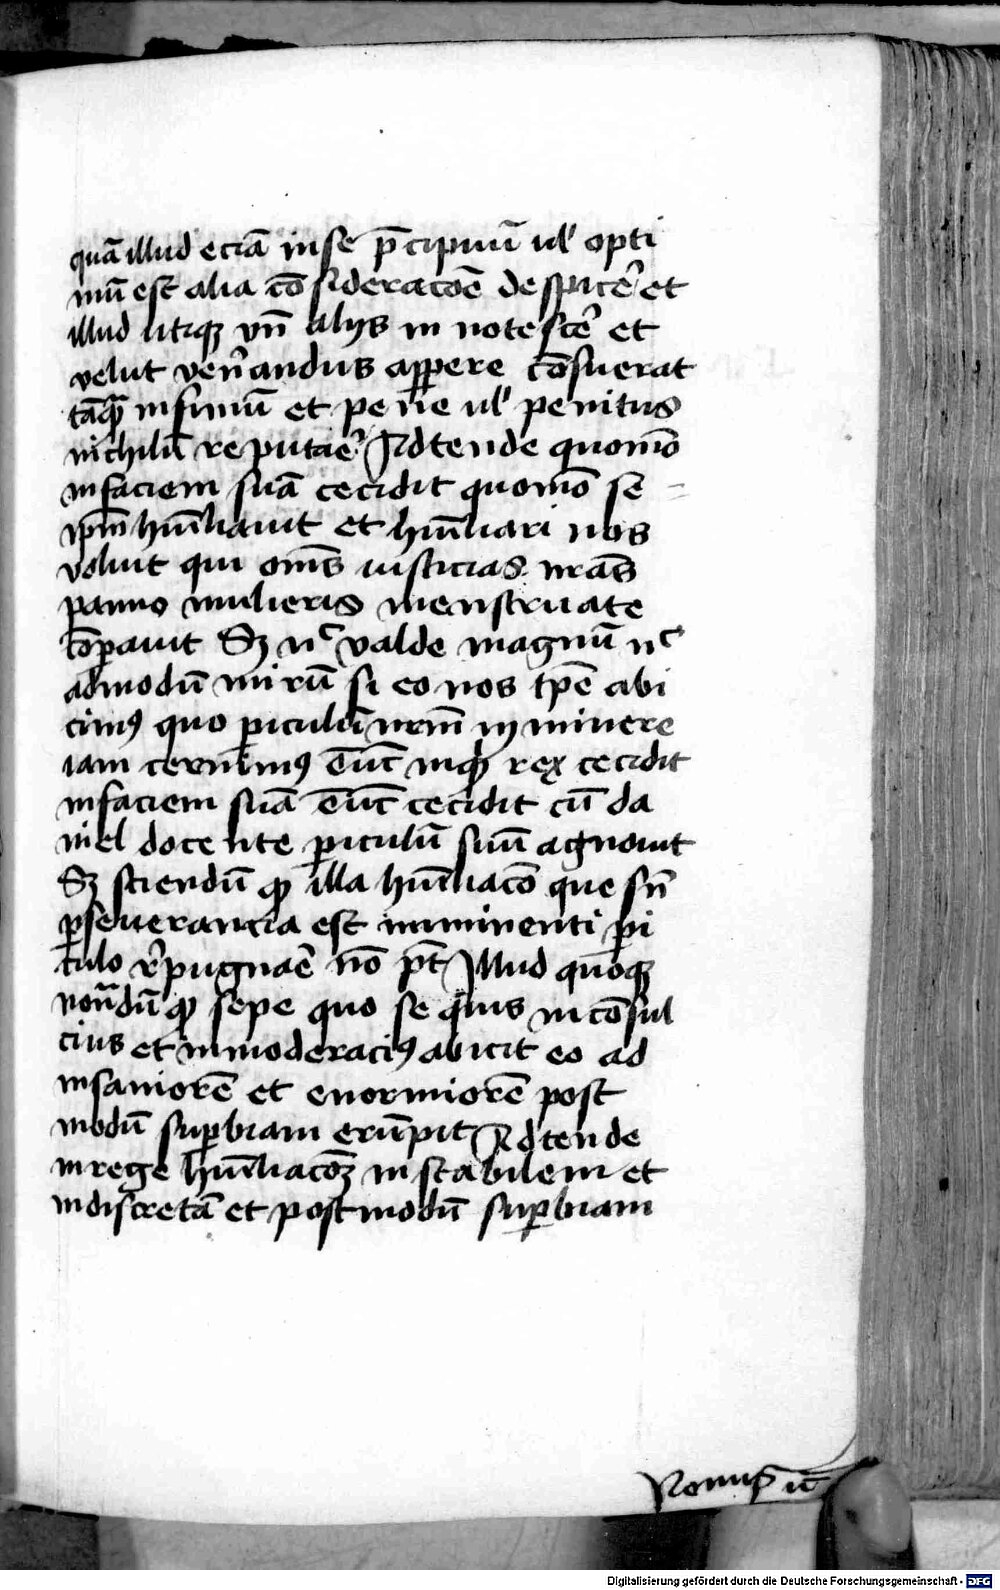 quā illud eciā in se p̄cipuū ul' opti
mū est alia cōsideracōē despicer̄ et
illud utiqꝫ vn̄ alijs in notescer̄ et
velut ven̄andus apꝑere cōsuerat
tāqꝫ infimū et pene ul' penitus
nichilū reputar̄ Adtende quomō
in faciem suā cecidit quomō se
ipm̄ humīliauit et humīliari nos
voluit qui om̄s iusticias nr̄as
panno mulieris menstruate
cōꝑauit Sꝫ nᶜ valde magnū nᶜ
admodū mirū si eo nos tp̄e abi
cimꝰ quo ꝑiculū nrm̄ iminere
iam cernimꝰ inqͥd rex cecidit
in faciem suā cecidit cū da
niel docente ꝑiculū suū agnouit
Sꝫ sciendū ꝙ illa humīliacō que sn̄
ꝑseuerancia est imminenti ꝑi
culo r̄pugnar̄ nō pt̄ Illud quoqꝫ
notādū ꝙ sepe quo se quis inconsul
cius et inmoderaciꝰ abicit eo ad
insaniorē et enormiorē post
modū suꝑbiam erūpit Adtende
in rege humīliacōꝫ instabilem et
indiscretā et postmodū suꝑbiam